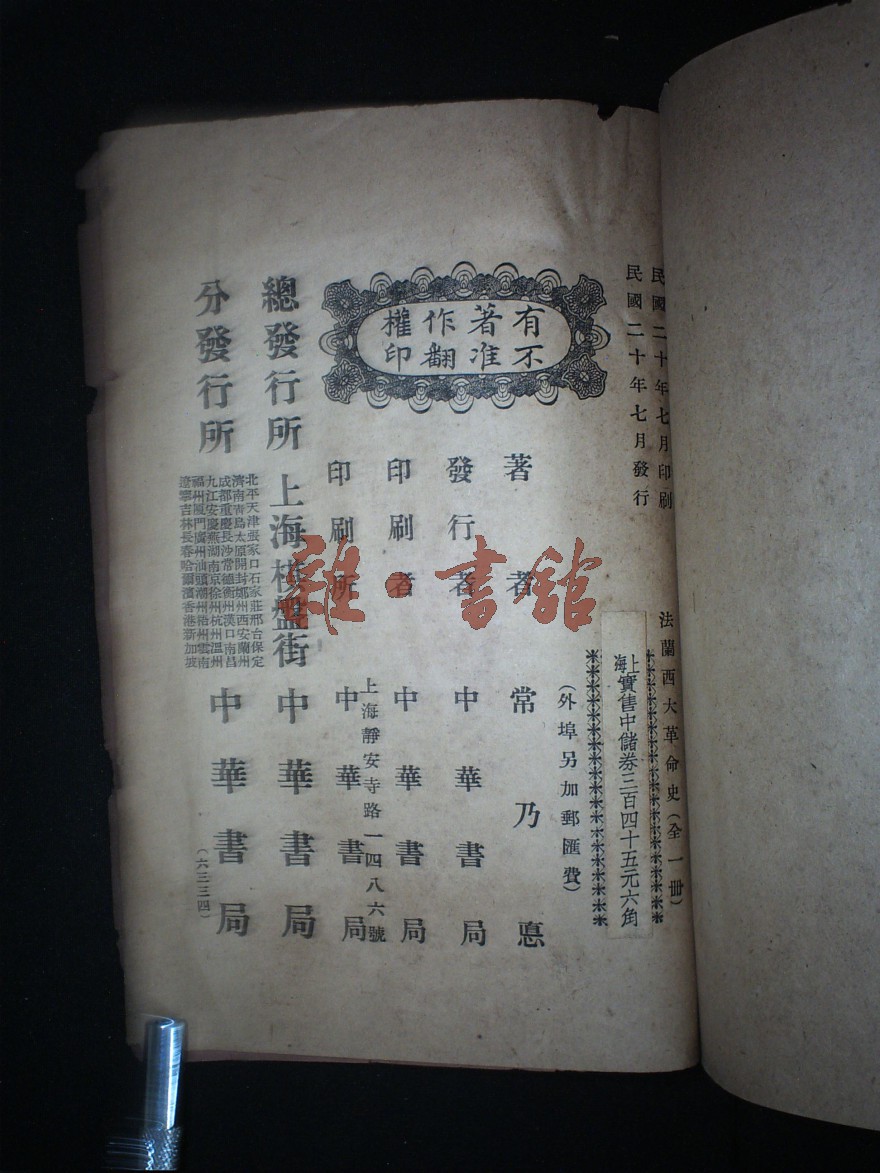 民國二十年七月印刷
民國二十年七月發行
法蘭西大革命史(全一冊)
上海實售中儲券三百四十五元六角
(外埠另加郵匯費)
有著作權
不准翻印
著者 常乃惪
發行者 中華書局
印刷者 中華書局
印刷所 上海靜安寺路一四八六號 中華書局
總發行所 上海棋盤街 中華書局
分發行所
北平天津張家口石家莊邢台保定
濟南青島太原開封鄭州西安蘭州
成都重慶長沙常德衡州漢口南昌
九江安慶蕪湖南京徐州杭州溫州
福州廈門廣州汕頭潮州梧州雲南
遼寧吉林長春哈爾濱香港新加坡
中華書局
(六三三四)
雜·書館